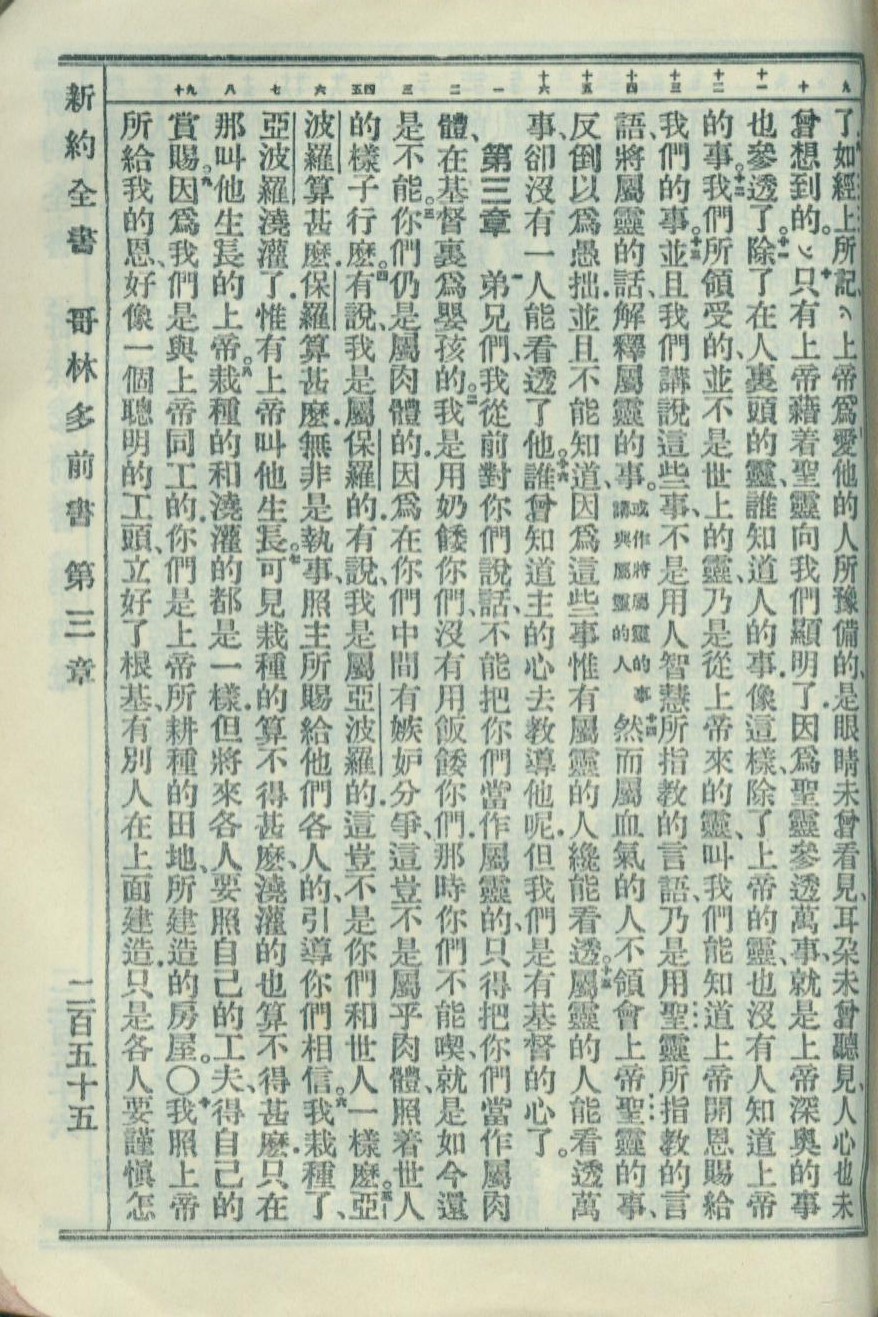 九 十 十一 十二 十三 十四 十五 十六 一 二 三 四五 六 七 八 九十
了如經上所記、〈上帝爲愛他的人所豫備的、是眼睛未曾看見、耳朶未曾聽見、人心也未
曾想到的。〉十只有上帝藉着聖靈、向我們顯明了．因爲聖靈參透萬事、就是上帝深奧的事
也參透了。十一除了在人裏頭的靈、誰知道人的事．像這樣、除了上帝的靈、也沒有人知道上帝
的事。十二我們所領受的、並不是世上的靈、乃是從上帝來的靈、叫我們能知道上帝開恩賜給
我們的事。十三並且我們講說這些事、不是用人智慧所指教的言語、乃是用聖靈所指教的言
語、將屬靈的話、解釋屬靈的事。或作將屬靈的事講與屬靈的人十四然而屬血氣的人不領會上帝聖靈的事、
反倒以爲愚拙．並且不能知道、因爲這些事惟有屬靈的人纔能看透。十五屬靈的人能看透萬
事、卻沒有一人能看透了他。十六誰曾知道主的心去教導他呢．但我們是有基督的心了。
第三章 一弟兄們、我從前對你們說話、不能把你們當作屬靈的、只得把你們當作屬肉
體、在基督裏爲嬰孩的。二我是用奶餧你們、沒有用飯餧你們．那時你們不能喫、就是如今還
是不能。三你們仍是屬肉體的．因爲在你們中間有嫉妒分爭、這豈不是屬乎肉體、照着世人
的樣子行麼．四有說、我是屬保羅的．有說、我是屬亞波羅的．這豈不是你們和世人一樣麼。五亞
波羅算甚麼．保羅算甚麼．無非是執事、照主所賜給他們各人的、引導你們相信。六我栽種了、
亞波羅澆灌了．惟有上帝叫他生長。七可見栽種的算不得甚麼、澆灌的也算不得甚麼．只在
那叫他生長的上帝。八栽種的和澆灌的都是一樣．但將來各人要照自己的工夫、得自己的
賞賜。九因爲我們是與上帝同工的．你們是上帝所耕種的田地、所建造的房屋。〇十我照上帝
所給我的恩、好像一個聰明的工頭、立好了根基、有別人在上面建造．只是各人要謹愼怎
新約全書 哥林多前書 第三章 二百五十五